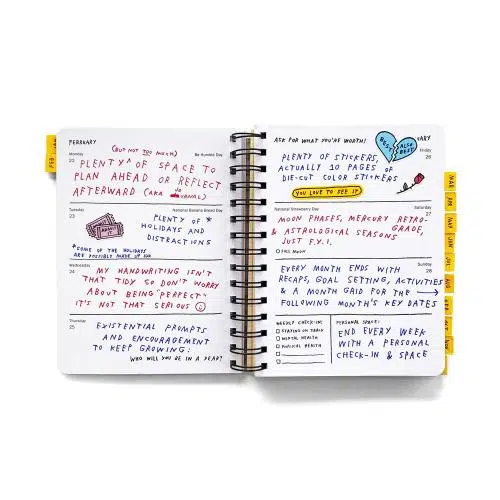 FEBRUARY
FEB
Monday
22
Be Humble Day
(BUT NOT TOO MUCH)
PLENTY ^ OF SPACE TO
PLAN AHEAD OR REFLECT
AFTERWARD (AKA JOURNAL)
Tuesday
23
National Banana Bread Day
PLENTY OF *
HOLIDAYS AND
DISTRACTIONS
ADMIT
*SOME OF THE HOLIDAYS
ARE POSSIBLY MADE UP
Wednesday
24
MY HANDWRITING ISN'T
THAT TIDY SO DON'T WORRY
ABOUT BEING "PERFECT"
IT'S NOT THAT SERIOUS
Thursday
25
EXISTENTIAL PROMPTS
AND ENCOURAGEMENT
TO KEEP GROWING:
WHO WILL YOU BE IN A YEAR?
ASK FOR WHAT YOU'RE WORTH!
Friday
26
BEST ALSO BEST
PLENTY OF STICKERS,
ACTUALLY 10 PAGES OF
DIE-CUT COLOR STICKERS
YOU LOVE TO SEE IT
Saturday
27
National Strawberry Day
MOON PHASES, MERCURY RETRO-
GRADE,
& ASTROLOGICAL SEASONS
JUST F.Y.I.
FULL MOON
Sunday
28
EVERY MONTH ENDS WITH
RECAPS, GOAL SETTING, ACTIVITIES
& A MONTH GRID FOR THE
FOLLOWING MONTH'S KEY DATES
WEEKLY CHECK-IN:
STAYING ON TRACK
MENTAL HEALTH
PHYSICAL HEALTH
PERSONAL SPACE:
END EVERY WEEK
WITH A PERSONAL
CHECK-IN & SPACE
MAR
APR
MAY
JUN
JUL